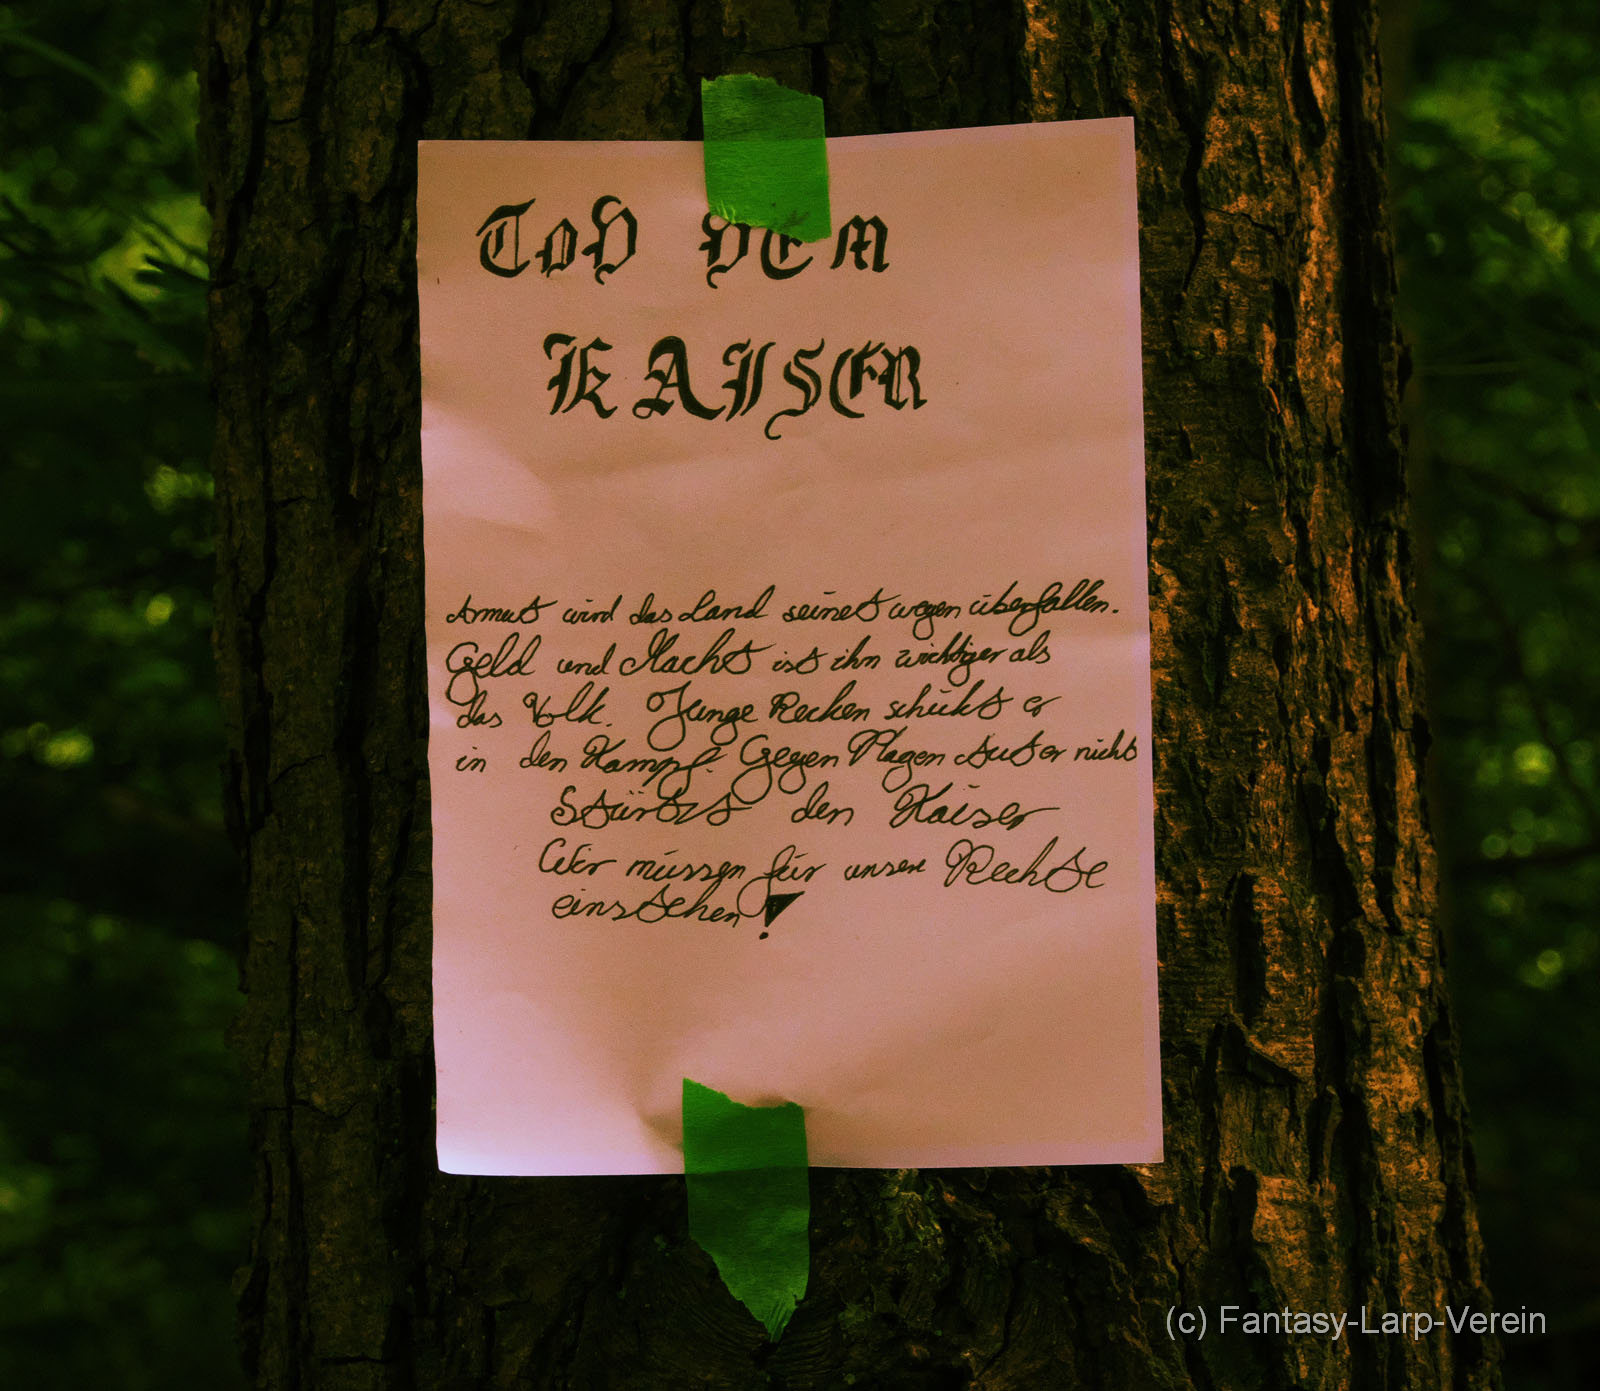 ToD DEM
KAISER
Armut wird das Land seinet wegen überfallen.
Geld und Macht ist ihm wichtiger als
das Volk. Junge Recken schickt er
in den Kampf. Gegen Plagen tut er nicht
Stürtzt den Kaiser
Wir müssen für unsere Rechte
einstehen!
(c) Fantasy-Larp-Verein